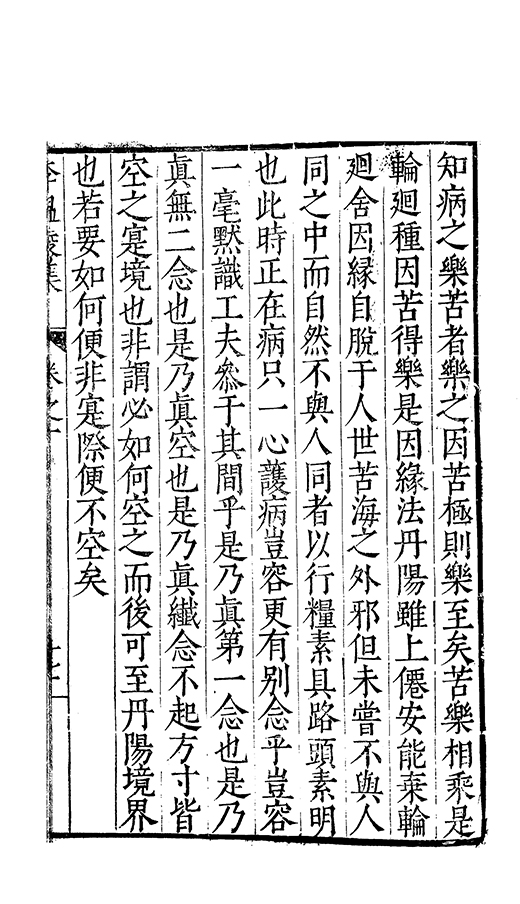 知病之樂苦者樂之因苦極則樂至矣苦樂相乘是
輪廻種因苦得樂是因緣法丹陽雖上僊安能棄輪
廻舍因緣自脫于人世苦海之外邪但未嘗不與人
同之中而自然不與人同者以行糧素具路頭素明
也此時正在病只一心護病豈容更有别念乎豈容
一毫默識工夫叅于其間乎是乃眞第一念也是乃
眞無二念也是乃眞空也是乃眞纎念不起方寸皆
空之寔境也非謂必如何空之而後可至丹陽境界
也若要如何便非寔際便不空矣
李溫陵集 卷之